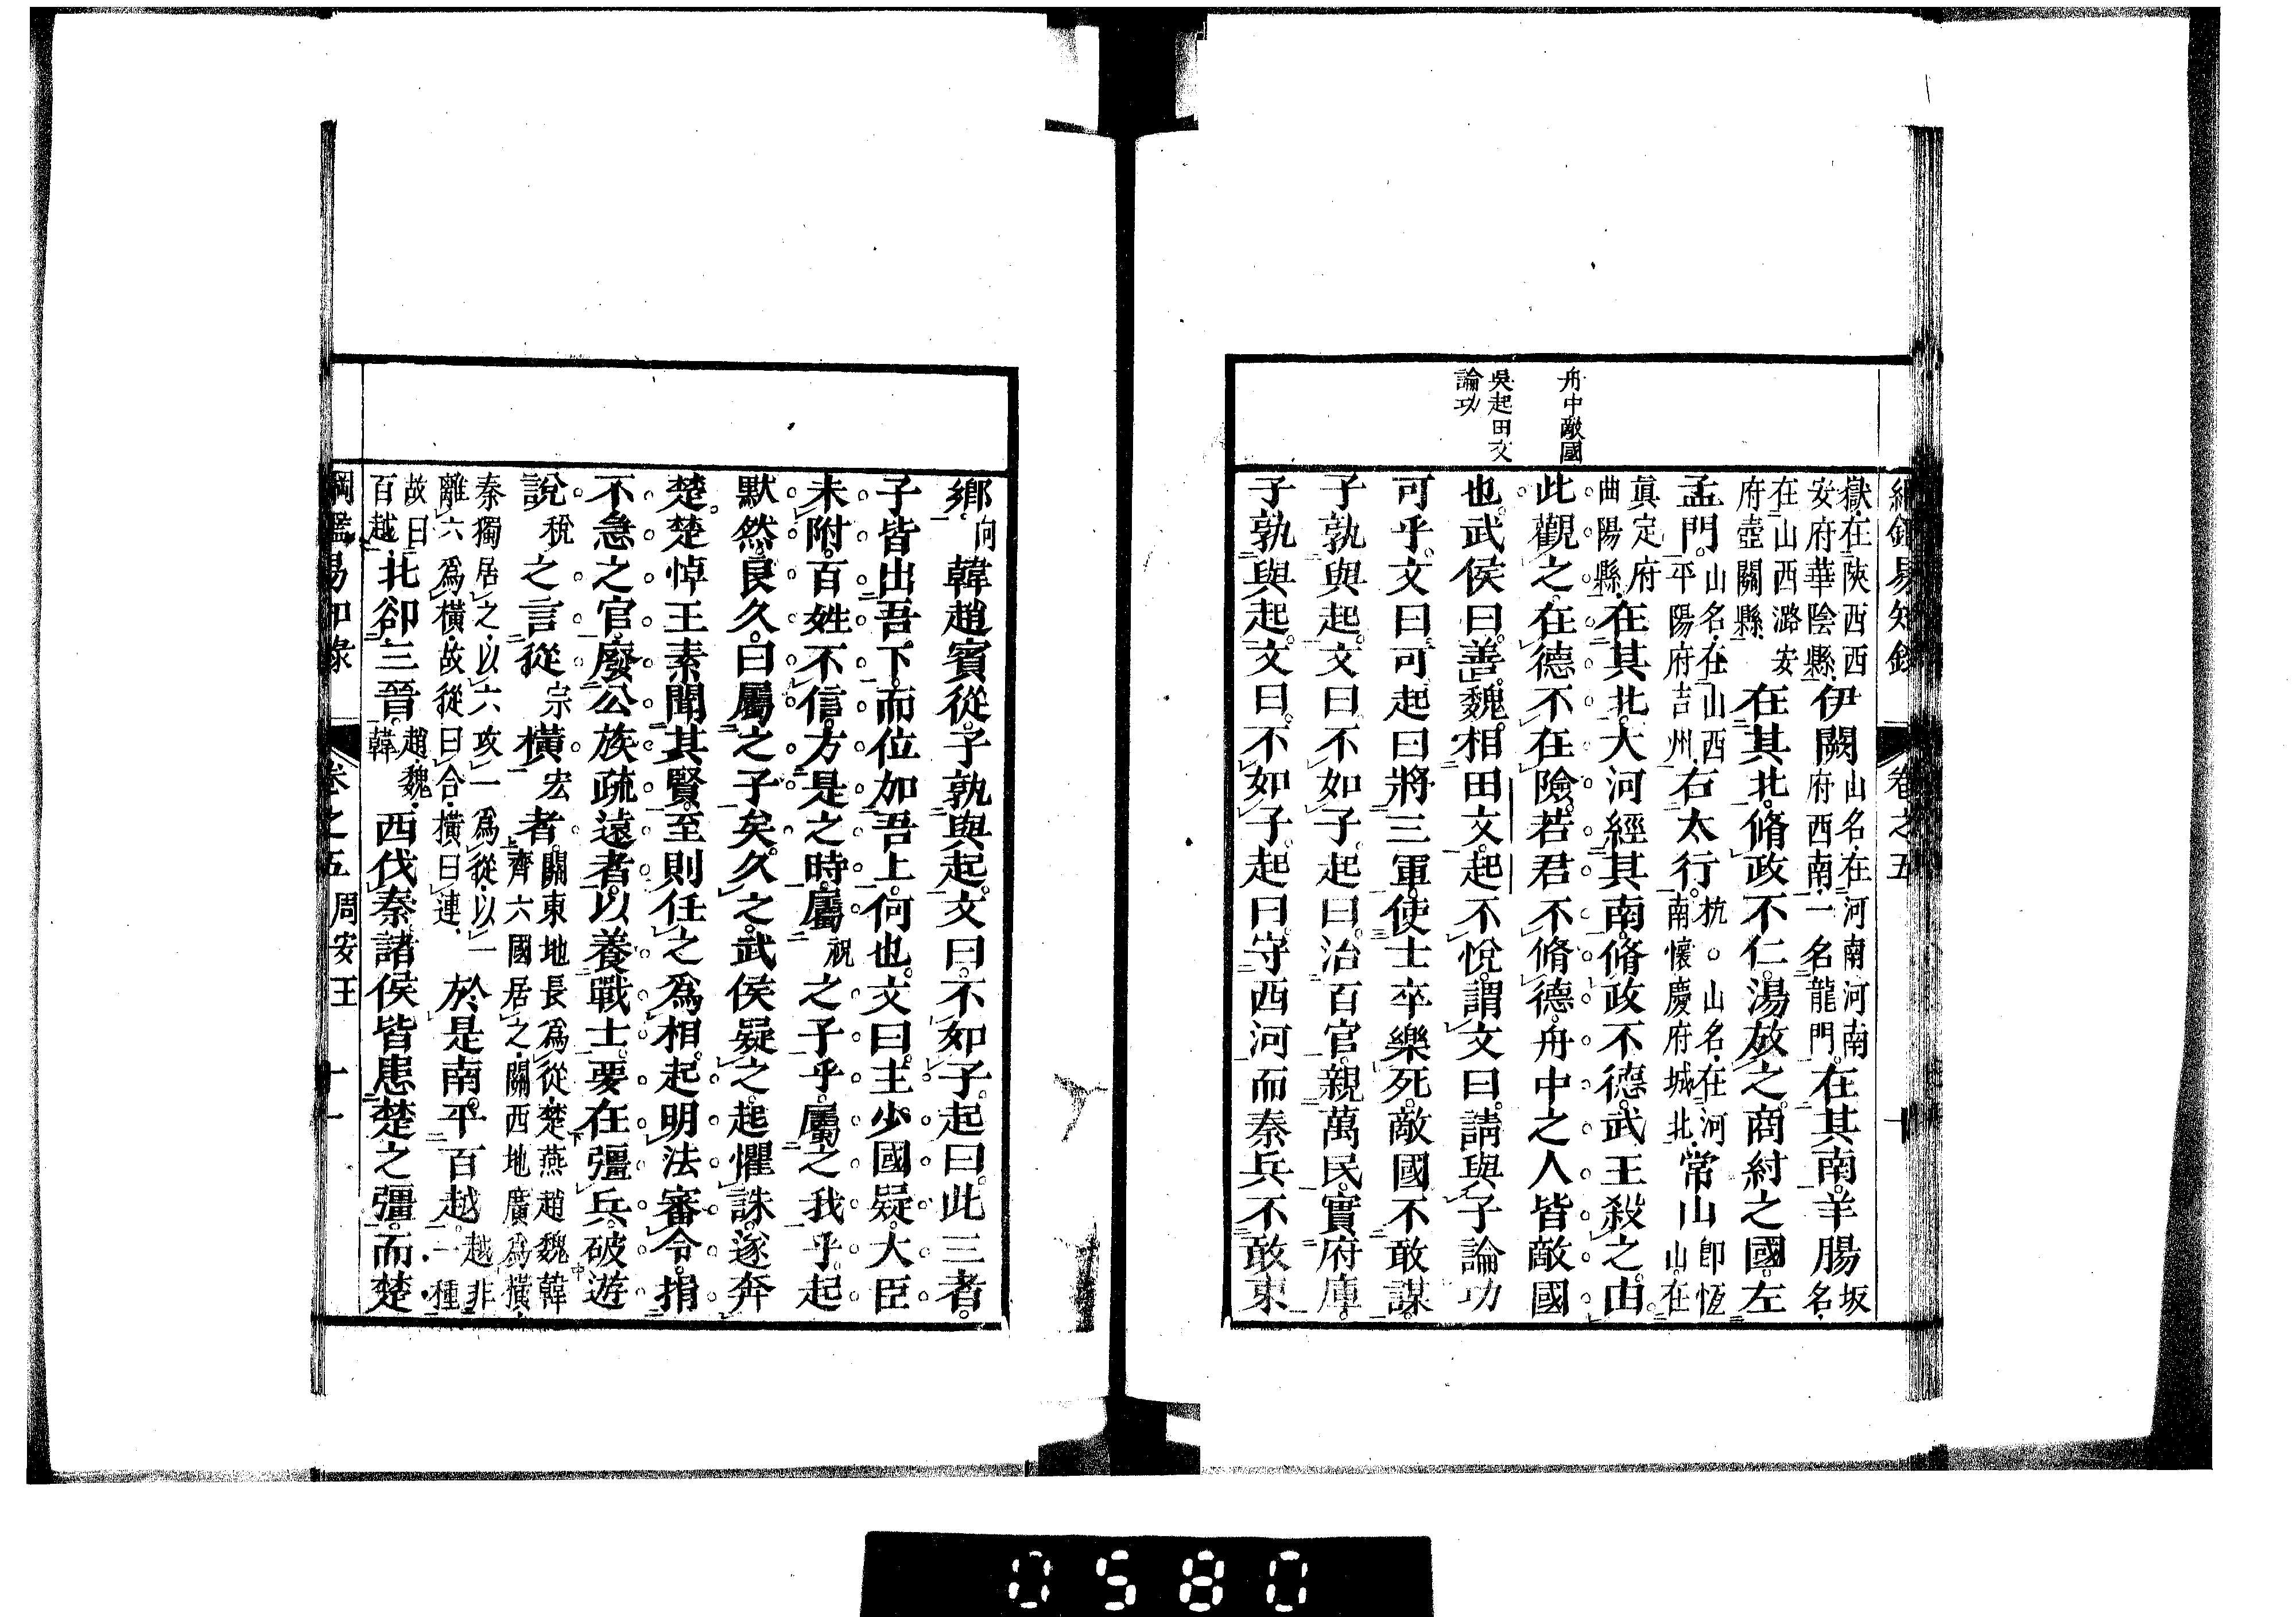 綱鑑易知錄　卷之五　十
嶽在陝西西
安府華陰縣伊闕山名在河南河南
府西南一名龍門在其南羊腸坂名
在山西潞安
府壺關縣在其北脩政不仁湯放之商紂之國左
孟門山名在山西
平陽府吉州右太行杭。山名在河
南懷慶府城北常山卽恆
山在
眞定府
曲陽縣在其北大河經其南脩政不德武王殺之由
此觀之在德不在險若君不脩德舟中之人皆敵國
舟中敵國
也武侯曰善魏相田文起不悅謂文曰請與子論功
吳起田文
論功
可乎文曰可起曰將三軍使士卒樂死敵國不敢謀
子孰與起文曰不如子起曰治百官親萬民實府庫
子孰與起文曰不如子起曰守西河而秦兵不敢東
鄉向韓趙賓從子孰與起文曰不如子起曰此三者
子皆出吾下而位加吾上何也文曰主少國疑大臣
未附百姓不信方是之時屬祝之子乎屬之我乎起
默然良久曰屬之子矣久之武侯疑之起懼誅遂奔
楚楚悼王素聞其賢至則任之爲相起明法審令捐
不急之官廢公族疏遠者以養戰士要在彊兵破遊
說稅之言從宗橫宏者關東地長爲從楚燕趙魏韓
齊六國居之關西地廣爲橫
秦獨居之以六攻一爲從以一
離六爲橫故從曰合橫曰連於是南平百越越非
一種
故曰
百越北卻三晉趙魏
韓西伐秦諸侯皆患楚之彊而楚
綱鑑易知錄　卷之五　周安王　十一
0580